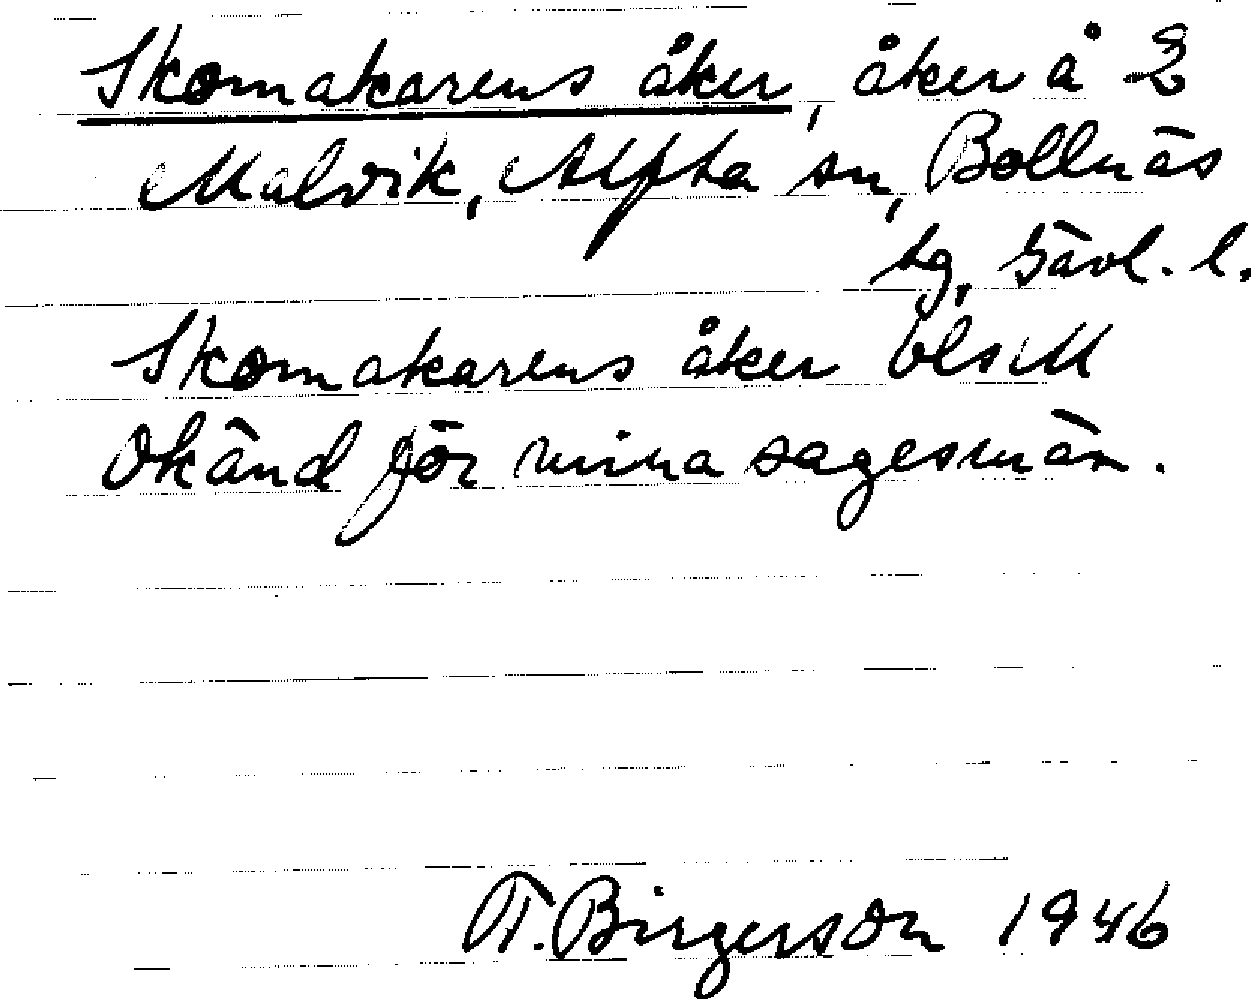 Skomakarens åker, åker å 2
Malvik, Alfta sn, Bollnäs
tg, Gävl. l.
Skomakarens åker OlsM
Okänd för mina sagesmän.
T. Birgerson 1946